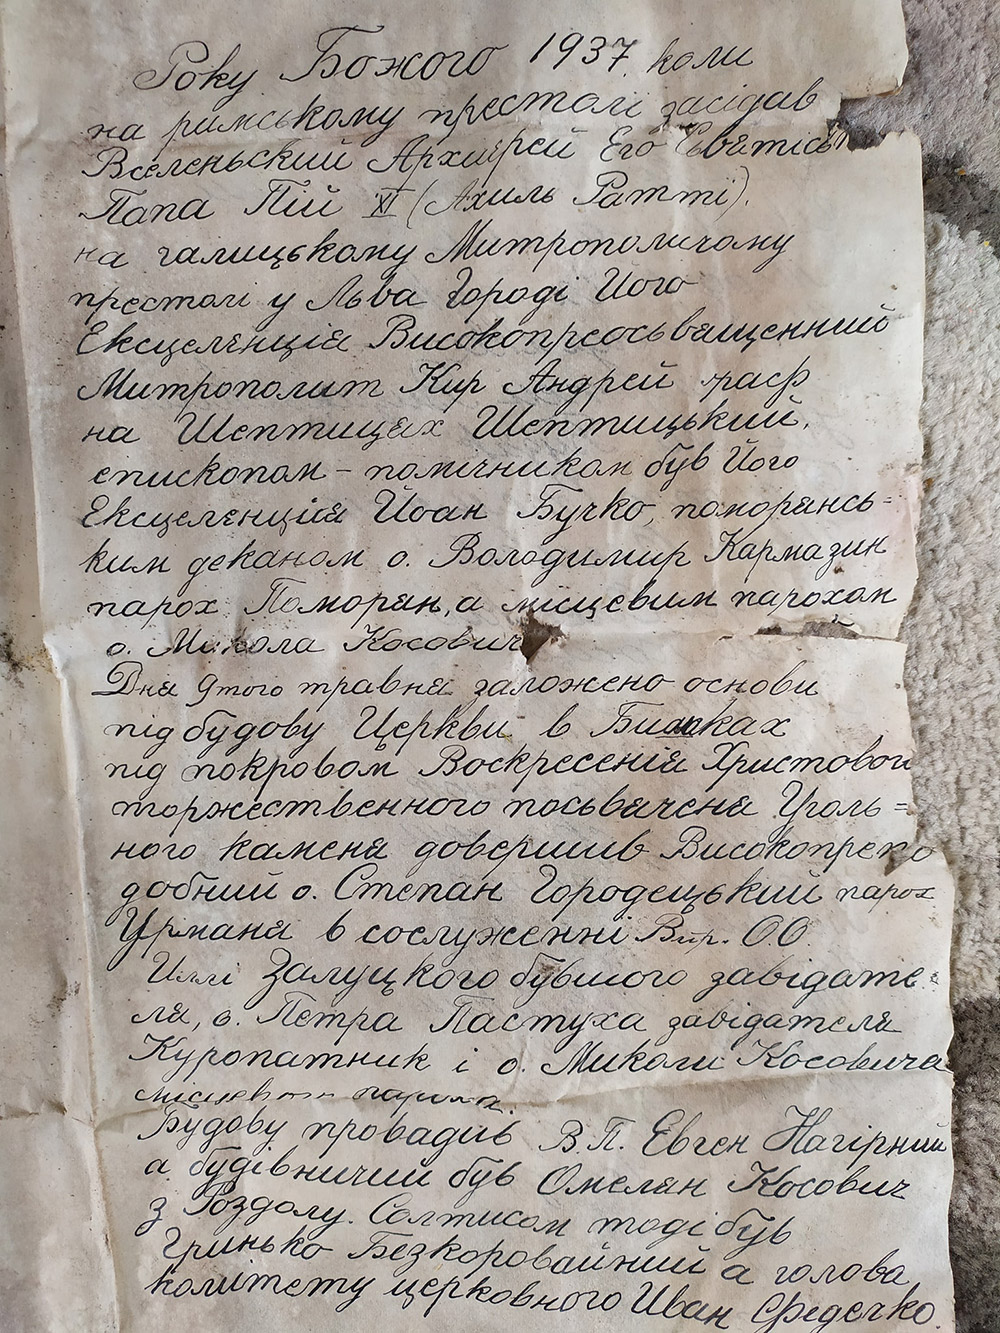 Року Божого 1937. коли
на римському престолі засідав
Вселеньский Архиєрей Его Святісь
Папа Пій XI (Ахиль Ратті).
на галицькому Митрополичому
престолі у Льва Городі Його
Ексцеленція Високопреосьвященний
Митрополит Кир Андрей граф
на Шептицях Шептицький,
єпископом - помічником був Його
Ексцеленція Йоан Бучко, поморянсь=
ким деканом о. Володимир Кармазин
парох Поморян, а місцевим парохом
о. Микола Косович
Дня 9того травня заложено основи
під будову Церкви в
під покровом Воскресенія Христового
торжественного посьвячення Уголь=
ного каменя довершив Високопрепо
добний о. Степан Городецький парох
Урманя в сослуженні Впр. О.О.
Иллі Залуцкого бувшого завідате=
ля, о. Петра Пастуха завідателя
Куропатник і о. Миколи Косовича
місцевого пароха.
Будову провадив В.П. Евген Нагірний
а будівничий був Омелян Косович
з Роздолу. Солтисом тоді був
Гринько Безкоровайний а голова
комітету церковного Иван Федечко.